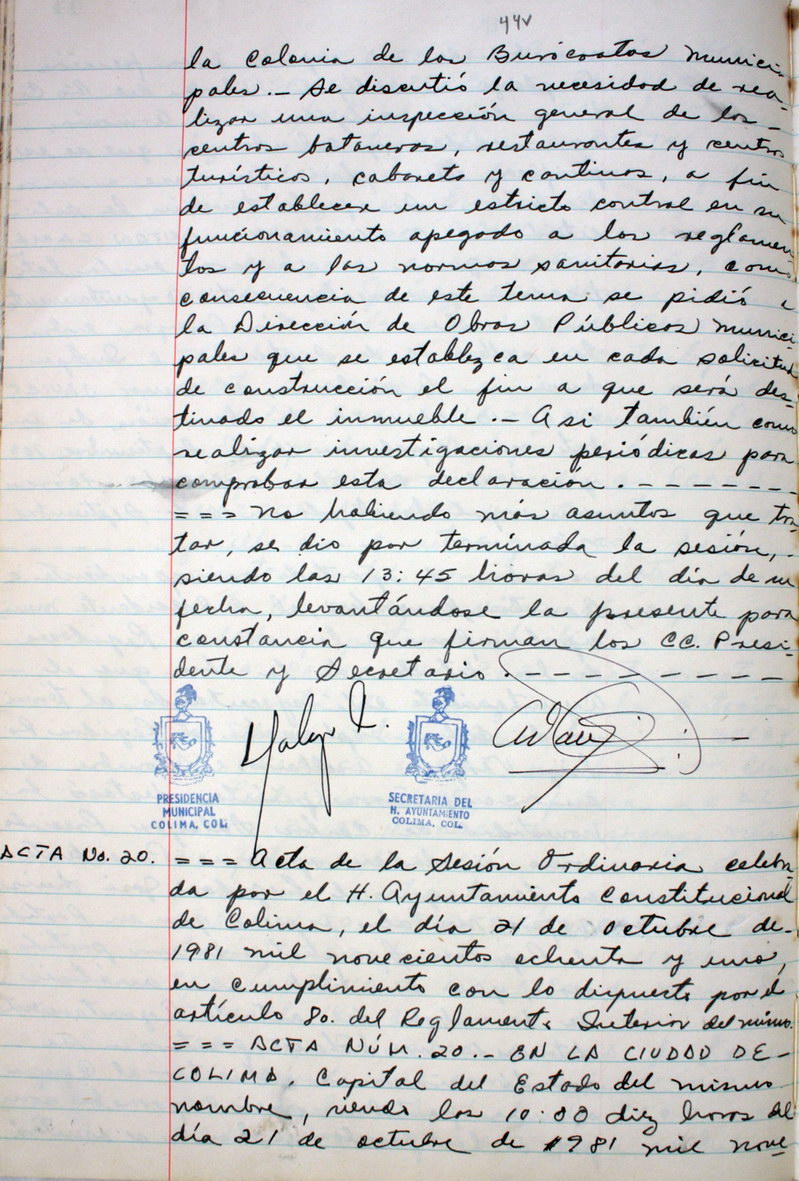 44v
la Colonia de los Burócratas Munici-
pales.- Se discutió la necesidad de rea-
lizar una inspección general de los-
centros botaneros, restaurantes y centros
turísticos, cabarets y cantinas, a fin
de establecer un estricto control en su
funcionamiento apegado a los reglamen-
tos y a las normas sanitarias, como
consecuencia de este tema se pidió a
la Dirección de Obras Públicas Munici-
pales que se establezca en cada solicitud
de construcción el fin a que será des-
tinado el inmueble.- Asi también como
realizar investigaciones periódicas para
comprobar esta declaración.-------
=== No habiendo más asuntos que tra-
tar, se dio por terminada la sesión,.
siendo las 13:45 horas del día de su
fecha, levantándose la presente para
constancia que firman los CC. Presi-
dente y Secretario.----------
PRESIDENCIA
MUNICIPAL
COLIMA, COL.
SECRETARIA DEL
H. AYUNTAMIENTO
COLIMA, COL.
ACTA No. 20. === Acta de la Sesión Ordinaria celebra-
da por el H. Ayuntamiento Constitucional
de Colima, el día 21 de Octubre de-
1981 mil novecientos ochenta y uno,
en cumplimiento con lo dispuesto por el
artículo 8o. del Reglamento Interior del mismo.
=== ACTA NÚM. 20.- EN LA CIUDAD DE-
COLIMA, Capital del Estado del mismo
nombre, siendo las 10:00 diez horas del
día 21 de octubre de 1981 mil nove-